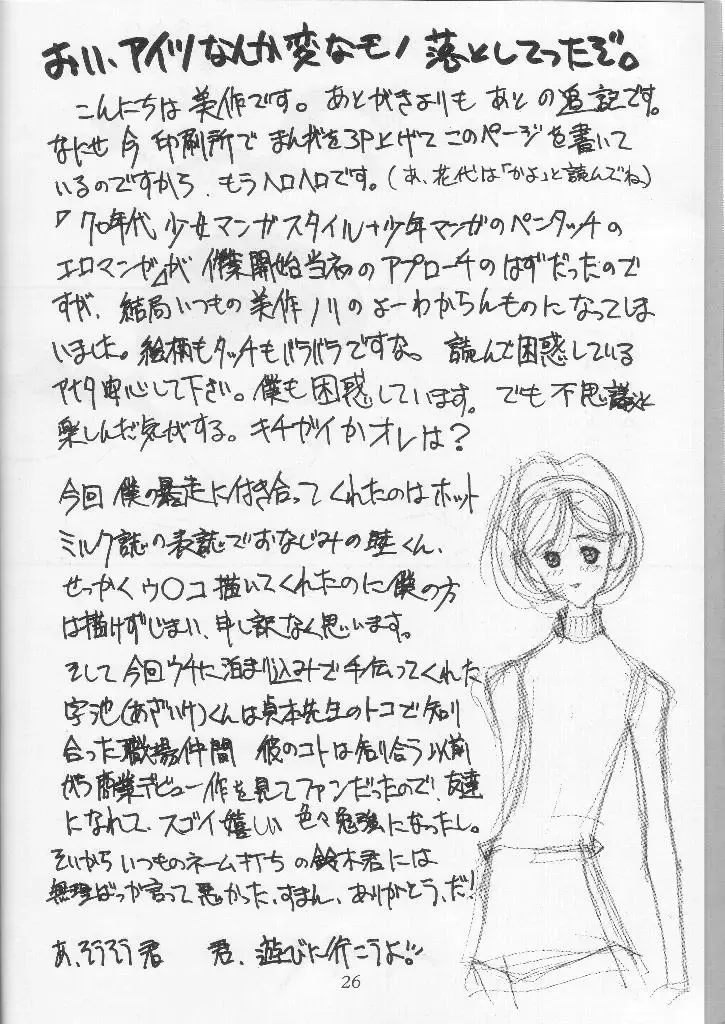 おい、アイツなんか変なモノ落としてったぞ。
こんにちは美作です。あとがきよりもあとの追記です。
なにせ今印刷所でまんがを3P上げてこのページを書いて
いるのですから、もうヘロヘロです。(あ、花代は「かよ」と読んでね。)
『70年代少女マンガスタイル+少年マンガのペンタッチの
エロマンガ』が作業開始当初のアプローチのはずだったので
すが、結局いつもの美作ノリのよーわからんものになってしま
いました。絵柄もタッチもバラバラですな。読んで困惑している
アナタ安心して下さい。僕も困惑しています。でも不思議と
楽しんだ気がする。キチガイかオレは?
今回僕の暴走に付き合ってくれたのはホット
ミルク誌の表誌でおなじみの睦くん、
せっかくウ○コ描いてくれたのに僕の方
は描けずじまい、申し訳なく思います。
そして今回ウチに泊まり込みで手伝ってくれた
字池(あざいけ)くんは貞本先生のトコで知り
合った職場仲間 彼のコトは知り合う以前
から商業デビュー作を見てファンだったので、友達
になれて、スゴイ嬉しい 色々勉強になったし。
それからいつものネーム打ちの鈴木君には
無理ばっか言って悪かった、すまん、ありがとう、だ!
あ、そうそう君 君、遊びに行こうよ!!
26